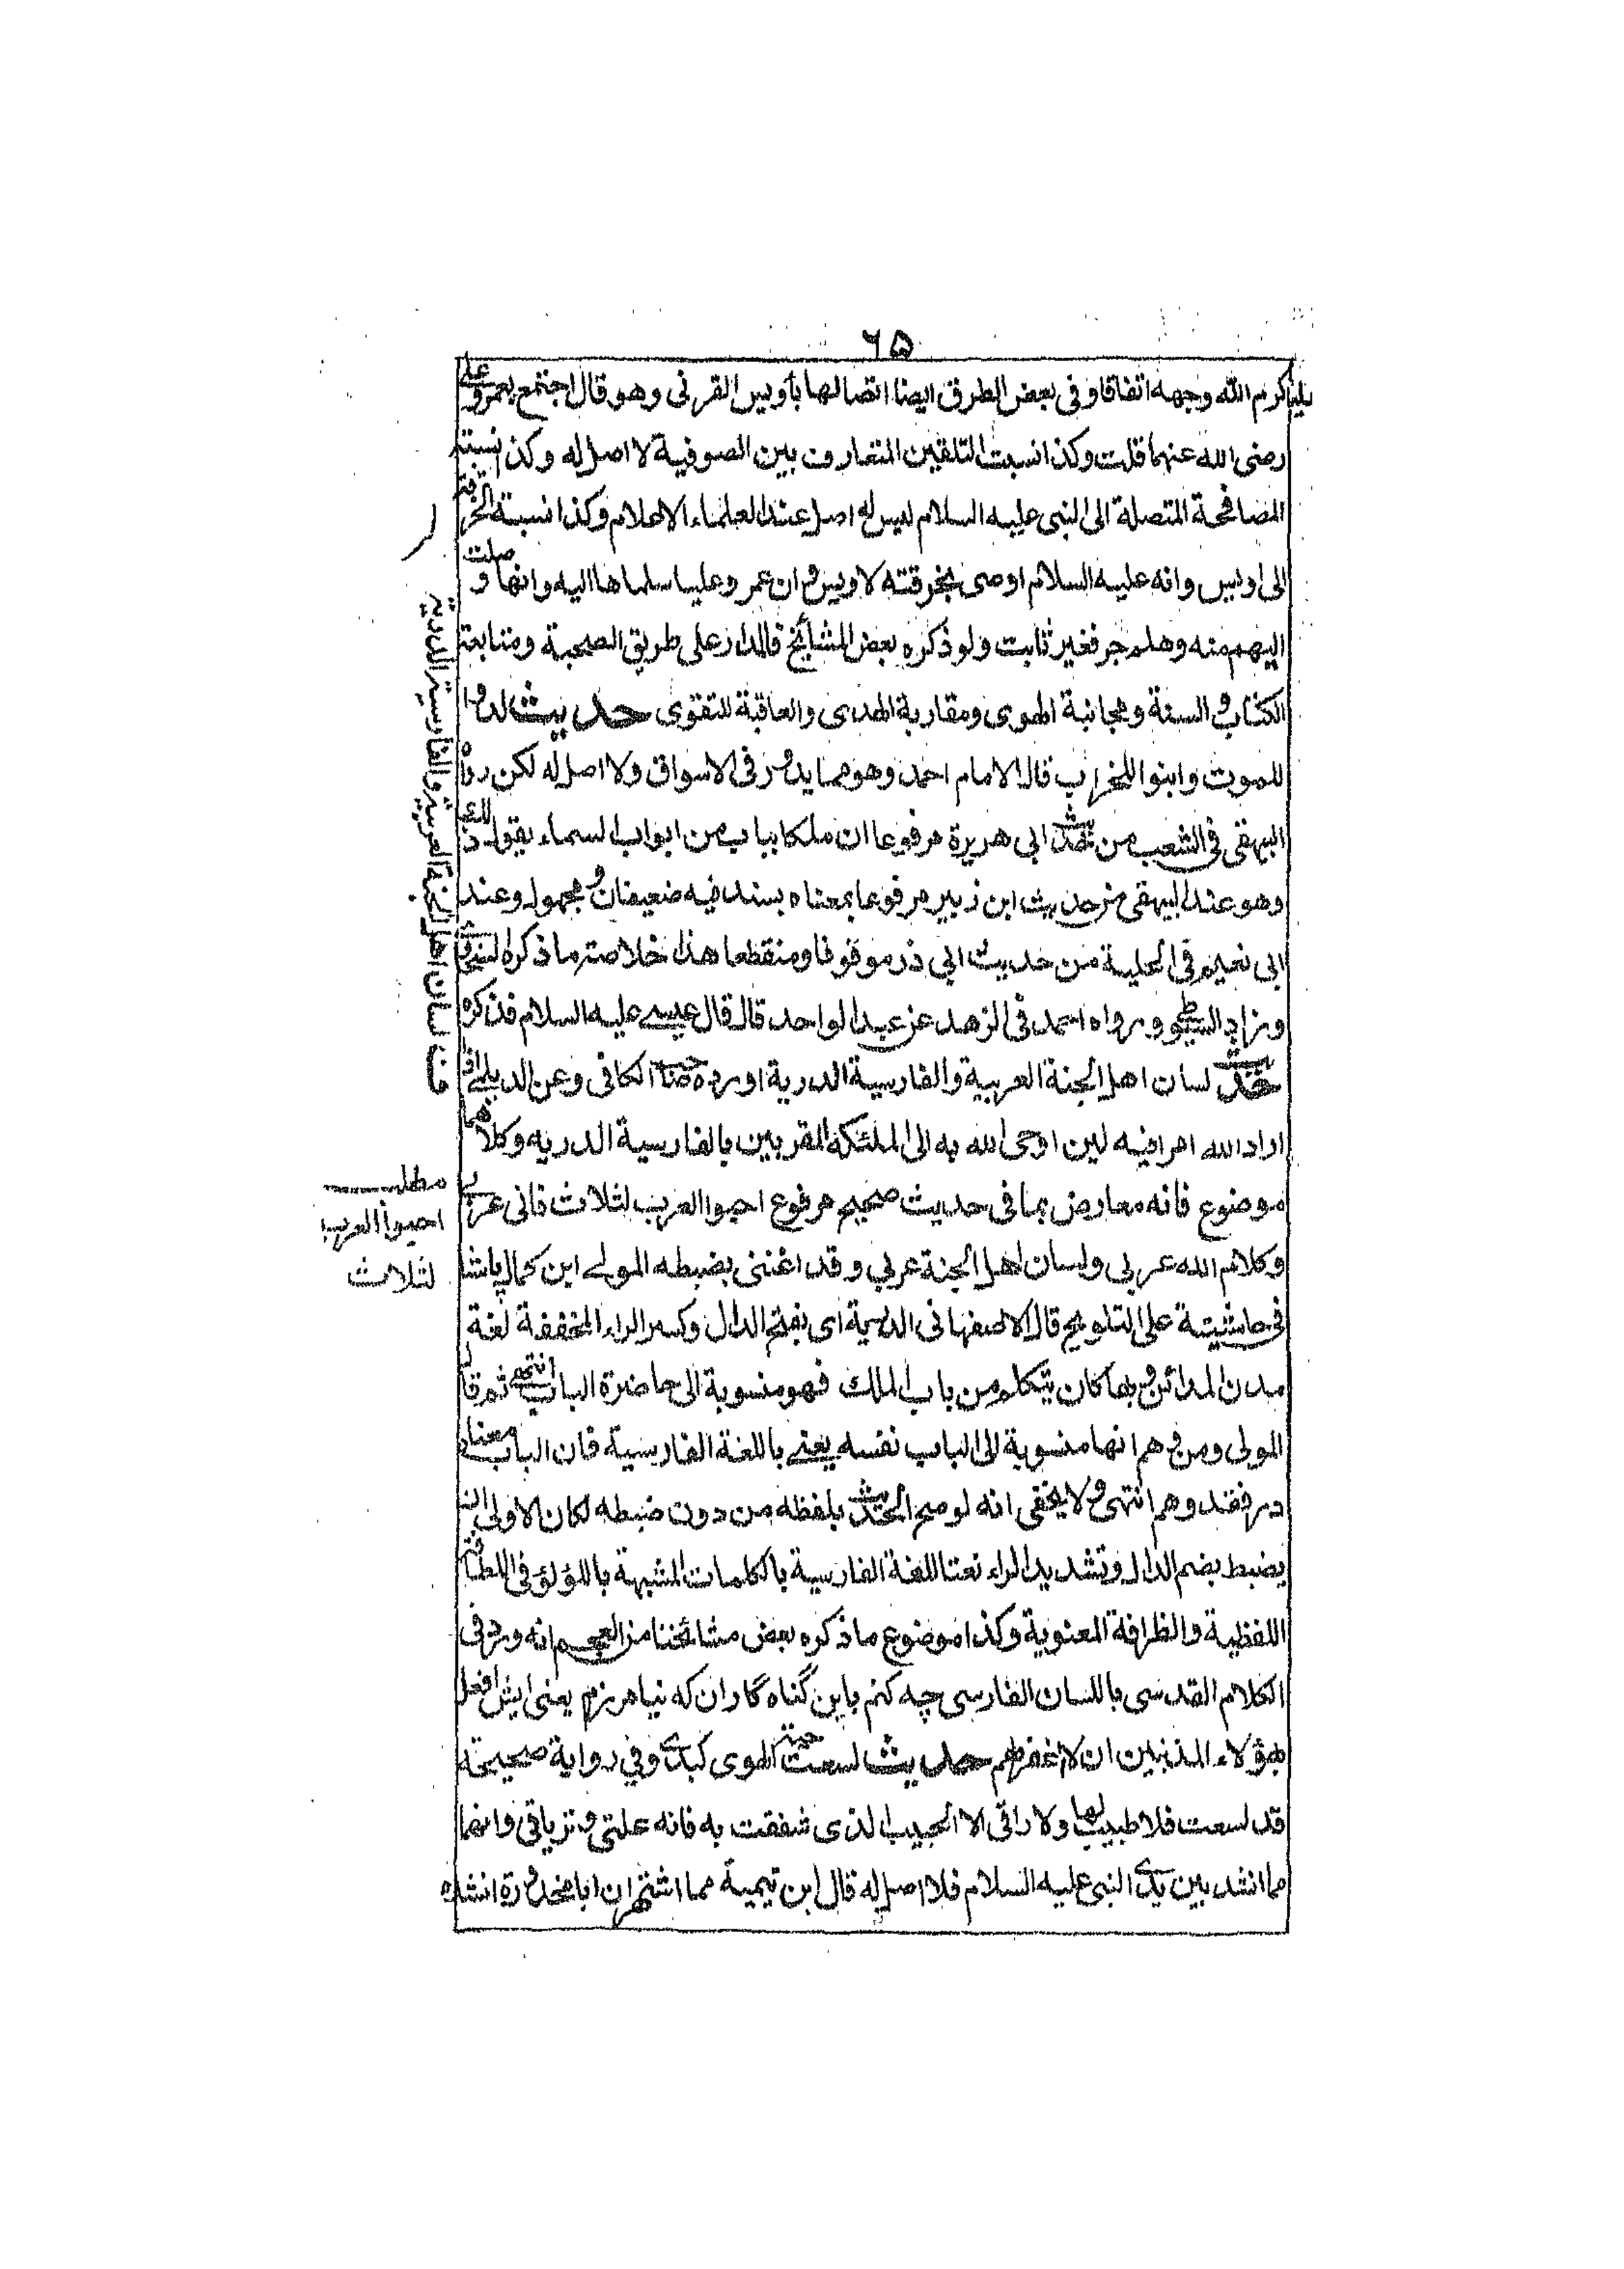 ٦٥
عليا كرم الله وجهه اتفاقا وفى بعض الطرق ايضا اتصالها باويس القرنى وهو قال اجتمع بعمر وعلى
رضى الله عنهما قلت وكذا نسبت التلقين المتعارف بين الصوفية لا اصل له وكذا نسبة
المصافحة المتصلة الى النبى عليه السلام ليس له اصل عند العلماء الاعلام وكذا نسبة الخرقة
الى اويس وانه عليه السلام اوصى بخرقته لاويس وان عمر وعليا سلماها اليه وانها وصلت
اليهم منه وهلم جر فغير ثابت ولو ذكره بعض المشائخ فالمدار على طريق الصحبة ومتابعة
الكتاب والسنة ومجانبة الهوى ومقاربة الهدى والعاقبة للتقوى حديث لدوا
للموت وابنوا للخراب قال الامام احمد وهو مما يدور فى الاسواق ولا اصل له لكن رواه
البيهقى فى الشعب من حديث ابى هريرة مرفوعا ان ملكا بباب من ابواب السماء يقول ذلك
وهو عند البيهقى من حديث ابن زبير مرفوعا بمعناه بسند فيه ضعيفان ومجهول وعند
ابى نعيم فى الحلية من حديث ابى ذر موقوفا ومنقطعا هذا خلاصة ما ذكره
وزاد السيوطى ورواه احمد فى الزهد عن عبد الواحد قال قال عيسے عليه السلام فذكره
حديث لسان اهل الجنة العربية والفارسية الدرية اورده صاحب الكافى وعن الديلمے اذا
اراد الله امرا فيه لين اوحى الله به الى الملئكة المقربين بالفارسية الدريه وكلاهما
موضوع فانه معارض بما فى حديث صحيح مرفوع احبوا العرب لثلاث فانى عربے
وكلام الله عربى ولسان اهل الجنة عربي وقد اعتنى بضبطه المولے ابن كمال پاشا
فى حاشيته على التلويح قال الاصفهانى الدرية اى بفتح الدال وكسر الراء المخففة لغة
مدن المدائن وبها كان يتكلم من باب الملك فهو منسوبة الى حاضرة الباب انتهے ثم قال
المولى ومن وهم انها منسوبة الى الباب نفسه يعنے باللغة الفارسية فان الباب معناه
در فقد وهم انتهى ولا يخفى انه لو صح الحديث بلفظه من دون ضبطه لكان الاولى ان
يضبط بضم الدال وتشديد الراء نعتا للغة الفارسية بالكلمات المشبهة باللؤلؤ فى اللطافة
اللفظية والظرافة المعنوية وكذا موضوع ما ذكره بعض مشائخنا من العجم انه ورد فى
الكلام القدسى باللسان الفارسى چه كنم باين گناه گاران كه نيامرزم يعنى ايش افعل
بهؤلاء المذنبين ان لا اغفر لهم حديث لسعت حية الهوى كبدے وفي رواية صحيحة
قد لسعت فلا طبيب لها ولا راقى الا الحبيب الذى شغفت به فانه علتى وترياقى وانهما
مما انشد بين يدے النبى عليه السلام فلا اصل له قال ابن تيمية مما اشتهر ان ابا محذورة انشده
مطلب
احبوا العرب
لثلاث
لسان اهل الجنة العربية والفارسية الدرية